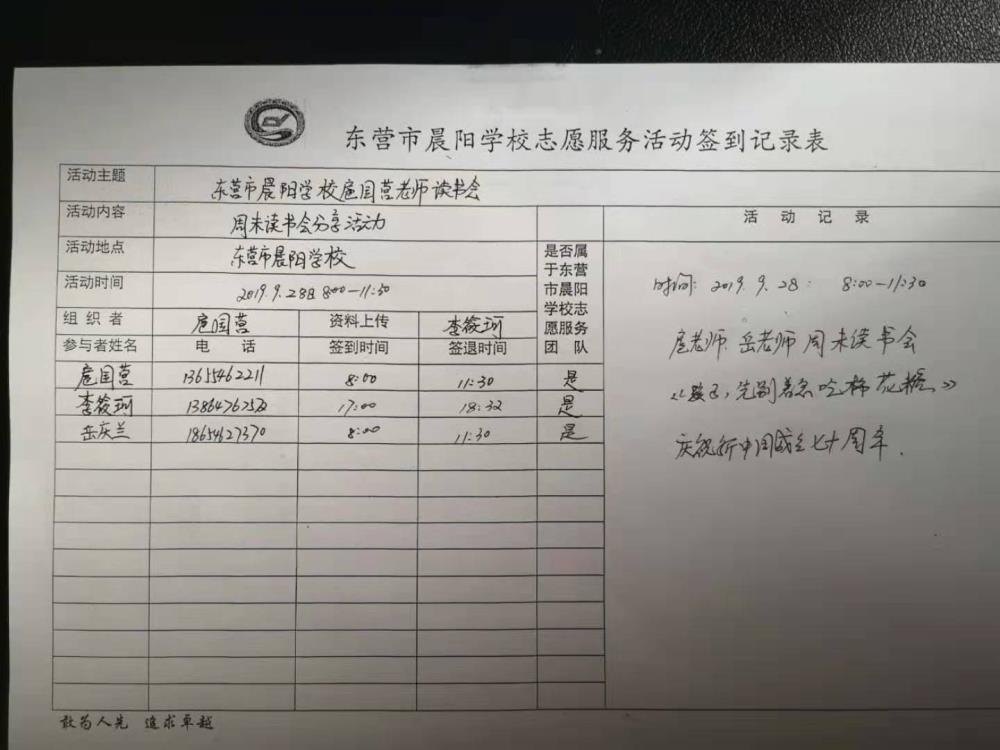 东营市晨阳学校志愿服务活动签到记录表
活动主题 东营市晨阳学校扈国营老师读书会
活动内容 周末读书会分享活力
活动地点 东营市晨阳学校
活动时间 2019.9.28日 8:00—11:30
组织者 扈国营 资料上传 李筱珂
参与者姓名 电话 签到时间 签退时间 是否属于东营市晨阳学校志愿服务团队
扈国营 13655462211 8:00 11:30 是
李筱珂 17:00 18:32 是
岳庆兰 18654627370 8:00 11:30 是
活动记录
时间: 2019.9.28: 8:00—11:30
扈老师、岳老师周末读书会
《孩子,先别着急吃棉花糖》
庆祝新中国成立七十周年.
敢为人先 追求卓越